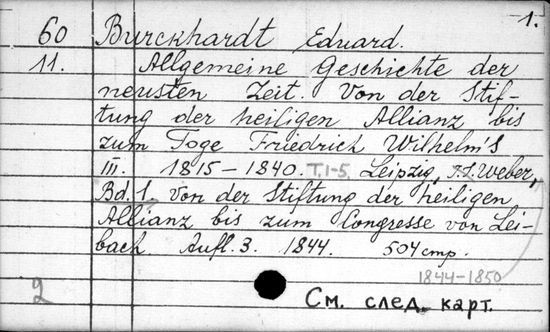 1.
60 Burckhardt Eduard.
11. Allgemeine Geschichte der
neusten Zeit. Von der Stif-
tung der heiligen Allianz bis
zum Toge Friedrich Wilhelm's
III. 1815-1840. T. 1-5. Leipzig, J.J. Weber,
Bd. 1. Von der Stiftung der heiligen
Allianz bis zum Congresse von Lei-
bach Aufl. 3. 1844. 504 стр.
1844-1850
2
См. след. карт.